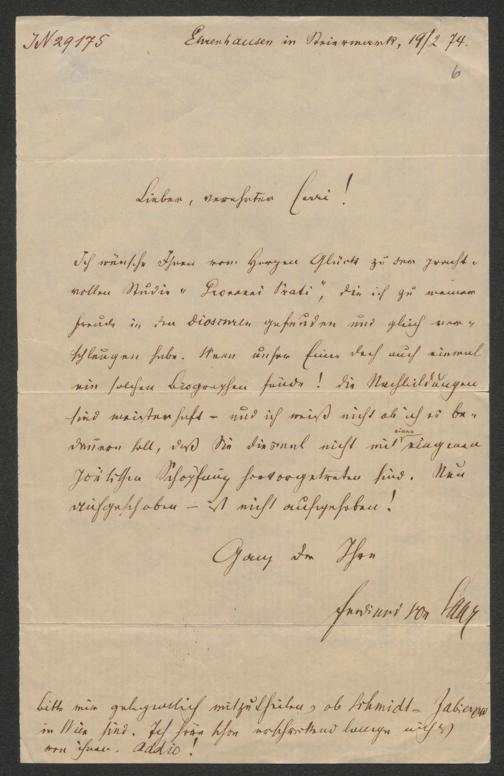 IN 29175
Ehrenhausen in Steiermark, 19/2 74.
6
Lieber, verehrter Cerri!
Ich wünsche Ihnen von Herzen Glück zu der pracht-
vollen Studie „Giovanni Prati", die ich zu meiner
Freude in den Dioscuren gefunden und gleich ver-
schlungen habe. Wenn unser Einer doch auch einmal
ein solchen Biographen fände! Die Nachbildungen
sind meisterhaft – und ich weiß nicht ob ich es be-
dauern soll, daß Sie diesmal nicht mit einer eigenen
poëtischen Schöpfung hervorgetreten sind. Nun
aufgeschoben – ist nicht aufgehoben!
Ganz der Ihre
Ferdinand von Saar
Bitte mir gelegentlich mitzutheilen, ob Schmidt-
in Wien sind. Ich höre schon erschreckend lange nichts
von ihnen. Addio!